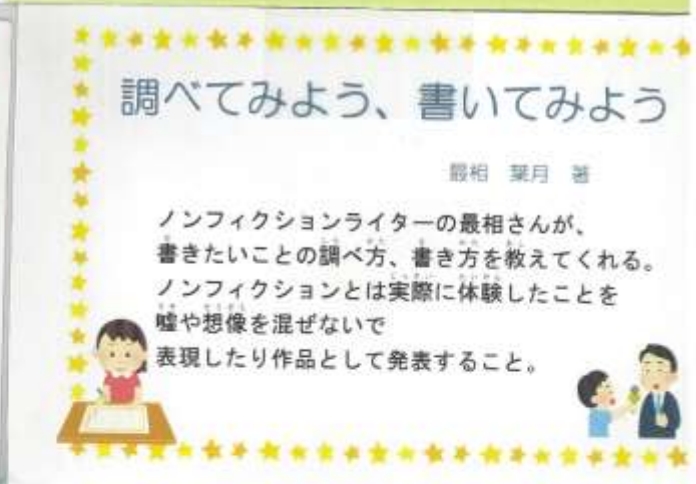 調べてみよう、書いてみよう
最相 葉月 著
ノンフィクションライターの最相さんが、
書きたいことの調べ方、書き方を教えてくれる。
ノンフィクションとは実際に体験したことを
嘘や想像を混ぜないで
表現したり作品として発表すること。